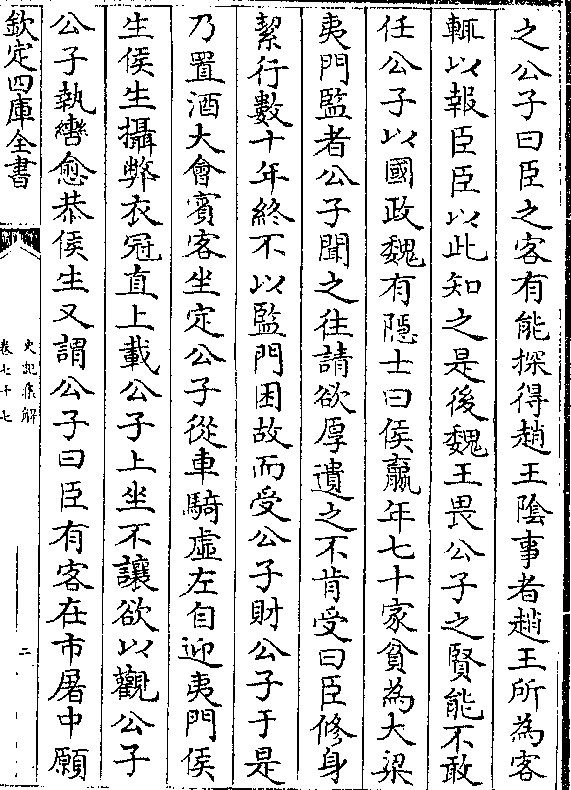 之公子曰臣之客有能探得趙王陰事者趙王所為客
輒以報臣臣以此知之是後魏王畏公子之賢能不敢
任公子以國政魏有隱士曰侯嬴年七十家貧為大梁
夷門監者公子聞之往請欲厚遺之不肯受曰臣修身
絜行數十年終不以監門困故而受公子財公子于是
乃置酒大會賓客坐定公子從車騎虛左自迎夷門侯
生侯生攝弊衣冠直上載公子上坐不讓欲以觀公子
公子執轡愈恭侯生又謂公子曰臣有客在市屠中願
欽定四庫全書
史記集解
卷七十七
二